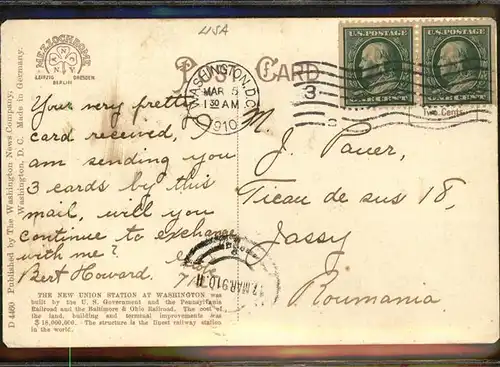 USA
MEZZOCHROME
LEIPZIG DRESDEN
BERLIN
POST CARD
WASHINGTON, D.C.
MAR 5
1 30 AM
1910
3
U.S. POSTAGE
ONE CENT
U.S. POSTAGE
ONE CENT
Two Cents
D 4469 Published by The Washington News Company,
Washington, D. C. Made in Germany.
Your very pretty
card received, I
am sending you
3 cards by this
mail, will you
continue to exchange
with me?
Bert Howard.
M. J. Pauer,
Ticau de sus 18,
Jassy
Roumania
MAR 910
THE NEW UNION STATION AT WASHINGTON was
built by the U. S. Government and the Pennsylvania
Railroad and the Baltimore & Ohio Railroad. The cost of
the land, building and terminal improvements was
$ 18,000,000. - The structure is the finest railway station
in the world.